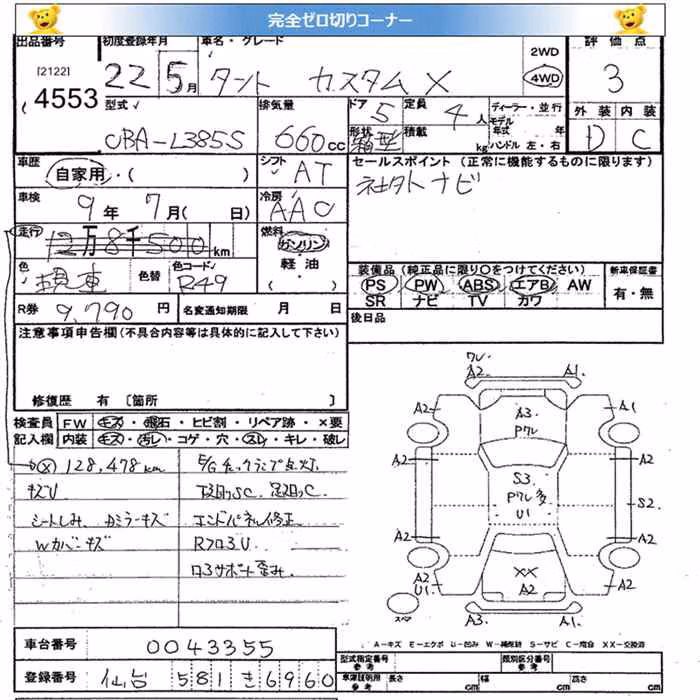 完全ゼロ切りコーナー
出品番号 [2122] 4553
初度登録年月 22 5月
車名・グレード タント カスタムX
2WD
4WD
評価点 3
型式 CBA-L385S
排気量 660cc
ドア 5
定員 4人
形状 箱型
積載 kg
ディーラー・並行
モデル年式 年
ハンドル 左・右
外装 内装
D C
車歴 自家用・( )
シフト AT
セールスポイント (正常に機能するものに限ります)
社外ナビ
車検 9年 7月( 日)
冷房 AAC
走行 12万8千500km
燃料 ガソリン
軽油
( )
色 現車 色替
色コード R49
装備品 (純正品に限り○をつけてください)
PS PW ABS エアB AW
SR ナビ TV カワ
新車保証書
有・無
R券 9,790円
名変通知期限 月 日
後日品
注意事項申告欄 (不具合内容等は具体的に記入して下さい)
修復歴 有 〔箇所 〕
検査員記入欄
FW キズ・飛石・ヒビ割・リペア跡・×要
内装 キズ・汚レ・コゲ・穴・スレ・キレ・破レ
× 128,478km
キズU
シートしみ、カミラーキズ
Wカバーキズ
E/Gチェックランプ点灯
下廻りSC. 足廻りC.
エンドパネル修正
Rフロ3U
ロ3サポート歪み
ワレ
A2 A1.
A2 A3. A1
Pワレ
A2 A2
S3
Pワレ多
U1
S2
A2 A2
A2
U1
××
A2
A2
スペア
A3 A1.
A-キズ E-エクボ U-凹み W-補修跡 S-サビ C-腐食 XX-交換済
車台番号 0043355
登録番号 仙台 581 き 6960
型式指定番号 参考
類別区分番号 参考
車庫証明用 参考 長さ cm 幅 cm 高さ cm